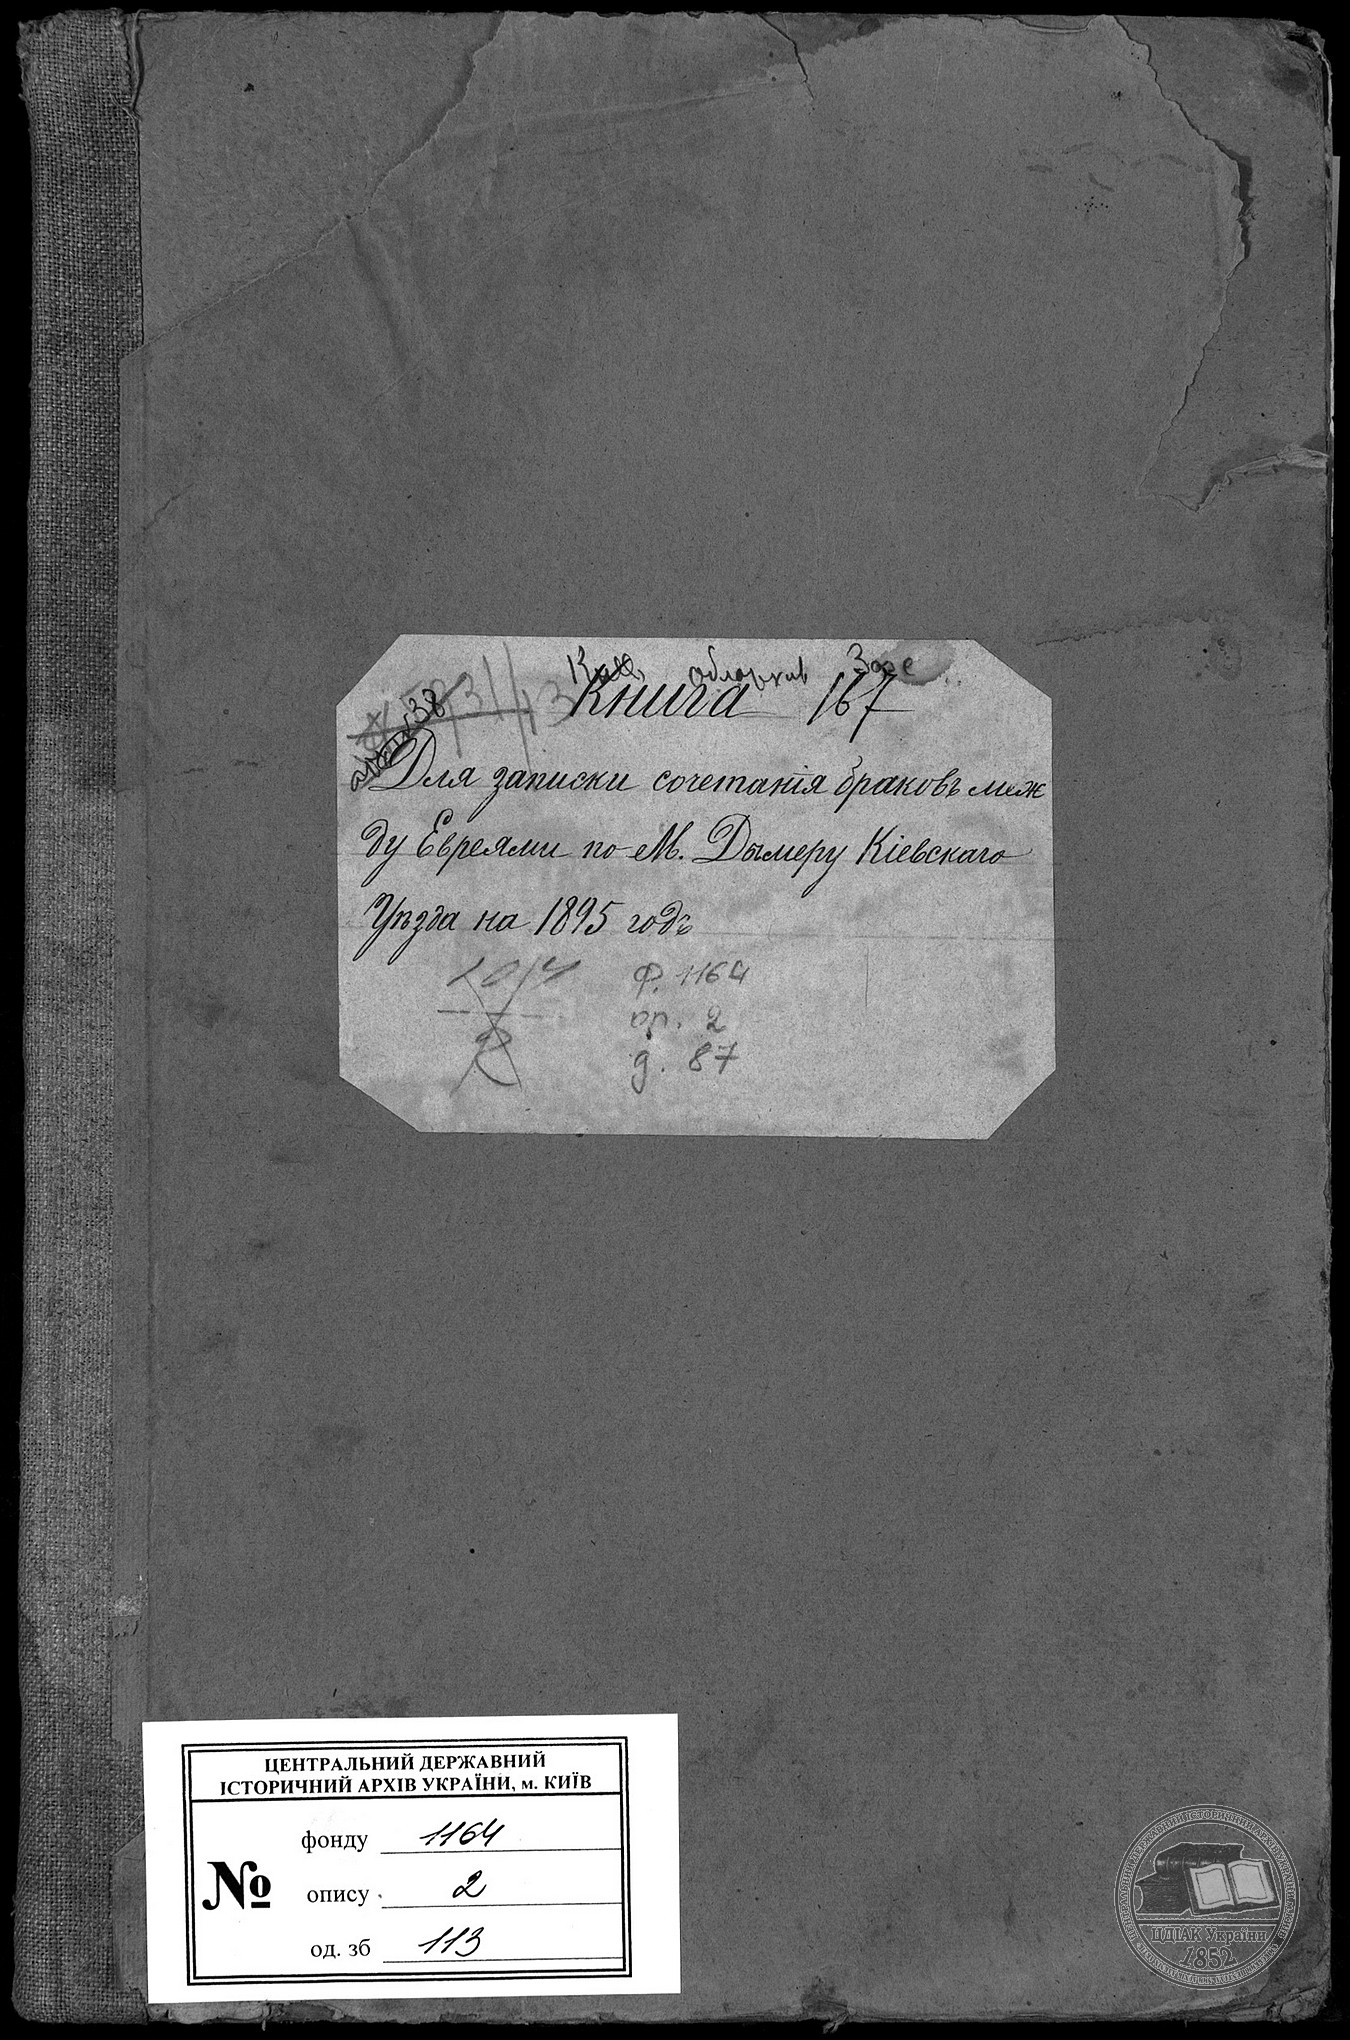 Книга 167
Для записки сочетанія браковъ меж
ду Евреями по М. Дымеру Кіевскаго
Уѣзда на 1895 годъ
ф. 1164
оп. 2
д. 87
ЦЕНТРАЛЬНИЙ ДЕРЖАВНИЙ
ІСТОРИЧНИЙ АРХІВ УКРАЇНИ, м. КИЇВ
фонду 1164
№ опису 2
од. зб 113
ЦДІАК України
1852